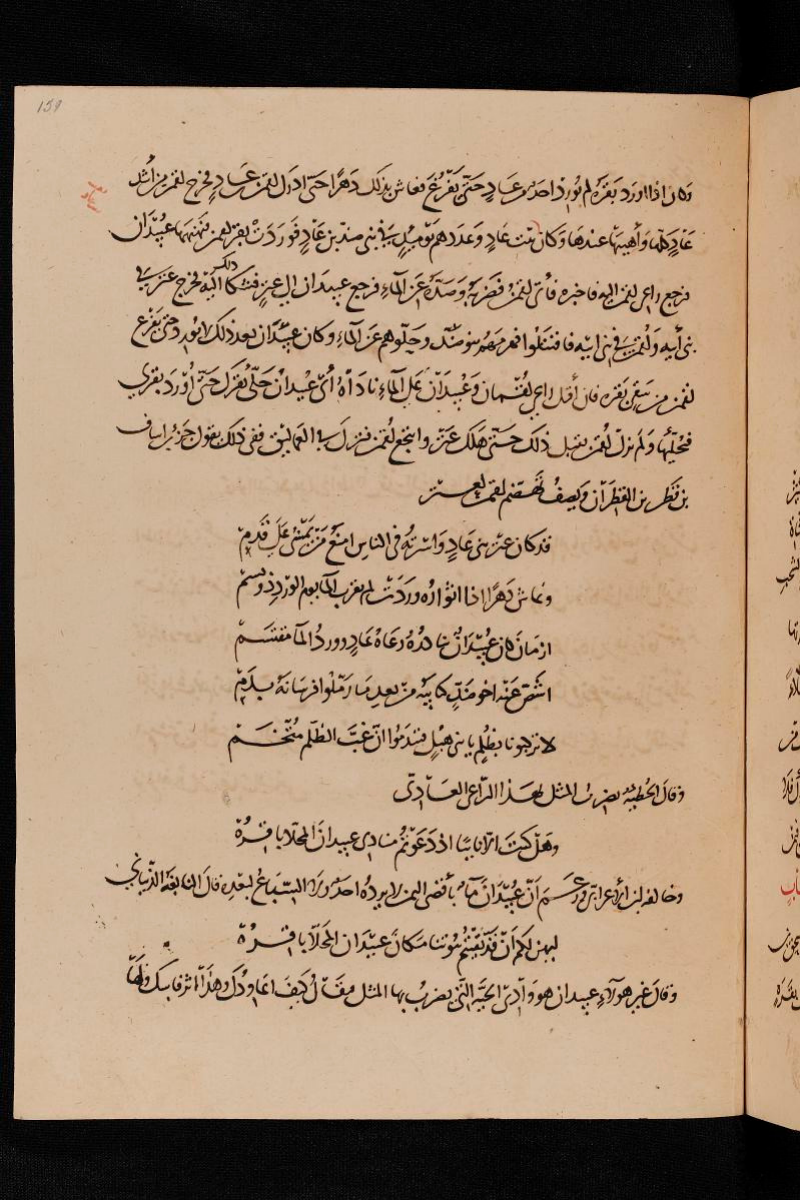 159
وكان اذا اورد بقره لم يورد احد من عاد حتى يفرغ فعاش بذلك دهرا حتى ادرك لقمن عاد فخرج لقمن من اشد
عاد كلها وأهيبها عندها وكان بيت عاد وعددهم يومئذ في بنى ضد بن عاد فوردت بقر لقمن فنهنهها عبيدان
فرجع راعي لقمن اليه فاخبره فأتى لقمن فضربه وصده عن الماء فرجع عبيدان الى عتر فشكا ذلك اليه فخرج عتر في
بنى أبيه ولقمن في بنى ابيه فاقتتلوا فهزمهم بنو ضد وحلوهم عن الماء وكان عبيدان بعد ذلك لا يورد حتى يفرغ
لقمن من سقى بقره فان أقبل راعي لقمان وعبيدان على الماء ناداه أى عبيدان حلئ بقرك حتى أورد بقرى
فيحلئها ولم يزل لقمن يفعل ذلك حتى هلك عتر وانتجع لقمن فنزل في العماليق ففى ذلك يقول جزء بن اساف
بن قطر بن القطران ويصف تهضم لقمن لعتر
قد كان عتر بنى عاد واسرته فى الناس امنع من يمشى على قدم
وعاش دهرا اذا اثواره وردت لم يقرب الماء يوم الورد ذو نسم
ازمان كان عبيدان تبادره رعاة عاد وورد الماء مقتسم
اشص عنه اخو ضد كتائبه من بعد ما رملوا فرسانه بدم
لا تزجونا بظلم يا بنى هبل فتندموا ان غب الظلم متخم
وقال الحطيئة يضرب المثل لهذا الراعى العادى
وهل كنت الا نائيا اذ دعوتم منادى عبيدان المحلا باقره
وخالفه ابن الاعرابى وزعم أن عبيدان ماء بأقصى اليمن لا يرده احد ورده السباع لبعده قال النابغة الذبيانى
ليهن لكم أن قد نفيتم بيوتنا مكان عبيدان المحلا باقره
وقال غير هؤلاء عبيدان هو وادى الحية التى يضرب بها المثل فيقال كيف اعاودك وهذا اثر فاسك ولها